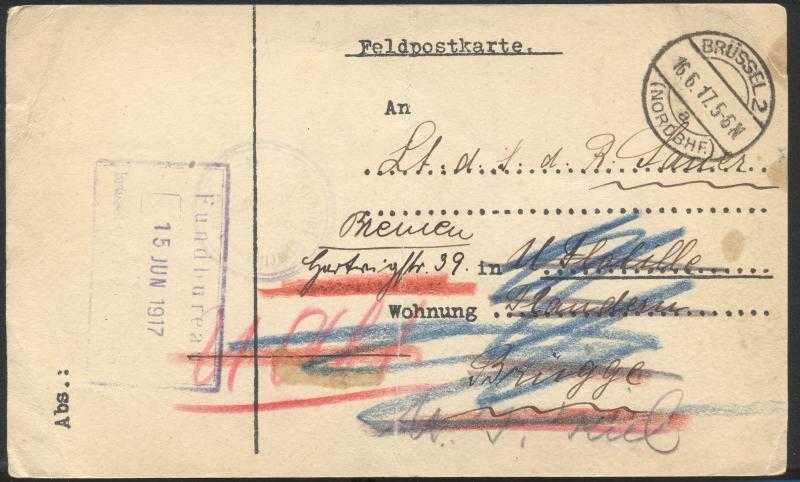 Feldpostkarte.
BRÜSSEL 2
16.6.17.5-6N
a
(NORDBHF.)
An
Lt. d. S. d. R. Sauer
Bremen
Hartwigstr. 39. in U Flotille
Wohnung Flandern
Brügge
Kiel
Fundbureau
15 JUN 1917
Abs.: